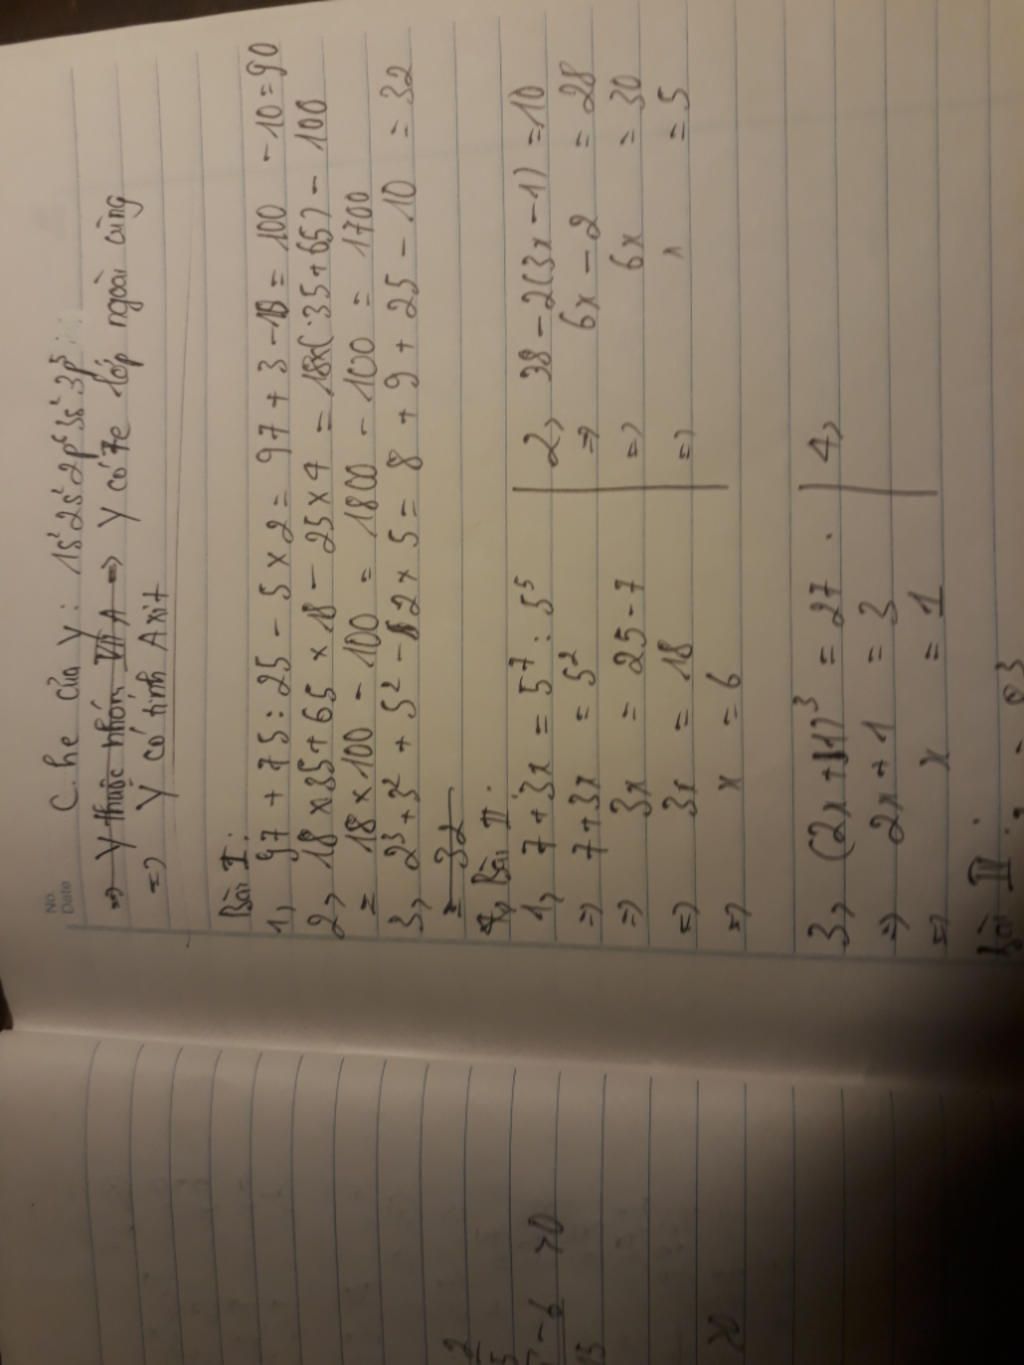 No.
Date
C.he của Y: 1s²2s²2p⁶3s²3p⁵
=> Y thuộc nhóm VII A => Y có 7e lớp ngoài cùng
=> Y có tính Axit
Bài I:
1, 97 + 75 : 25 - 5 x 2 = 97 + 3 - 10 = 100 - 10 = 90
2, 18 x 35 + 65 x 18 - 25 x 4 = 18x( 35 + 65) - 100
= 18 x 100 - 100 = 1800 - 100 = 1700
3, 2³ + 3² + 5² - 2 x 5 = 8 + 9 + 25 - 10 = 32
= 32
Bài II.
1, 7 + 3x = 5⁷ : 5⁵
=> 7 + 3x = 5²
=> 3x = 25 - 7
=> 3x = 18
=> x = 6
2, 38 - 2(3x - 1) = 10
=> 6x - 2 = 28
=> 6x = 30
=> x = 5
3, (2x + 1)³ = 27 .
=> 2x + 1 = 3
=> x = 1
4,
Bài
- 6 >0